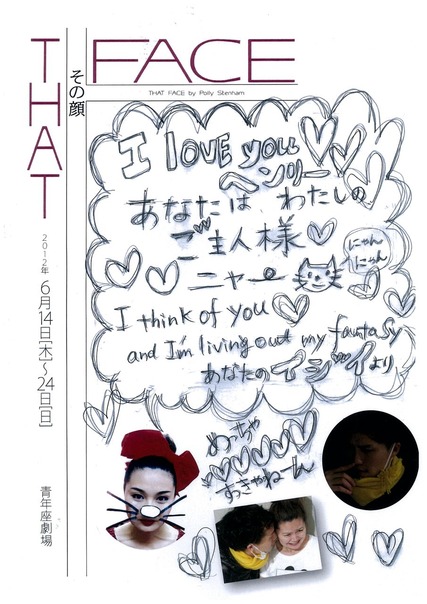 THAT
FACE
その顔
THAT FACE by Polly Stenham
I love you
ヘンリー
あなたは わたしの
ご主人様
ニャー
にゃん
にゃん
I think of you
and I'm living out my fantasy
あなたのイジイより
めっちゃ
すきやねーん
2012年 6月14日[木]〜24日[日]
青年座劇場